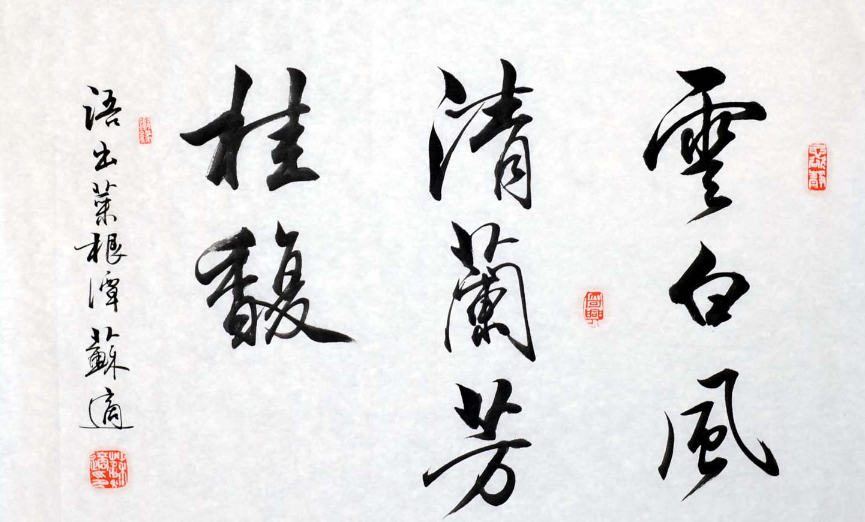 雲白風
清蘭芳
桂馥
語出菜根譚蘇適